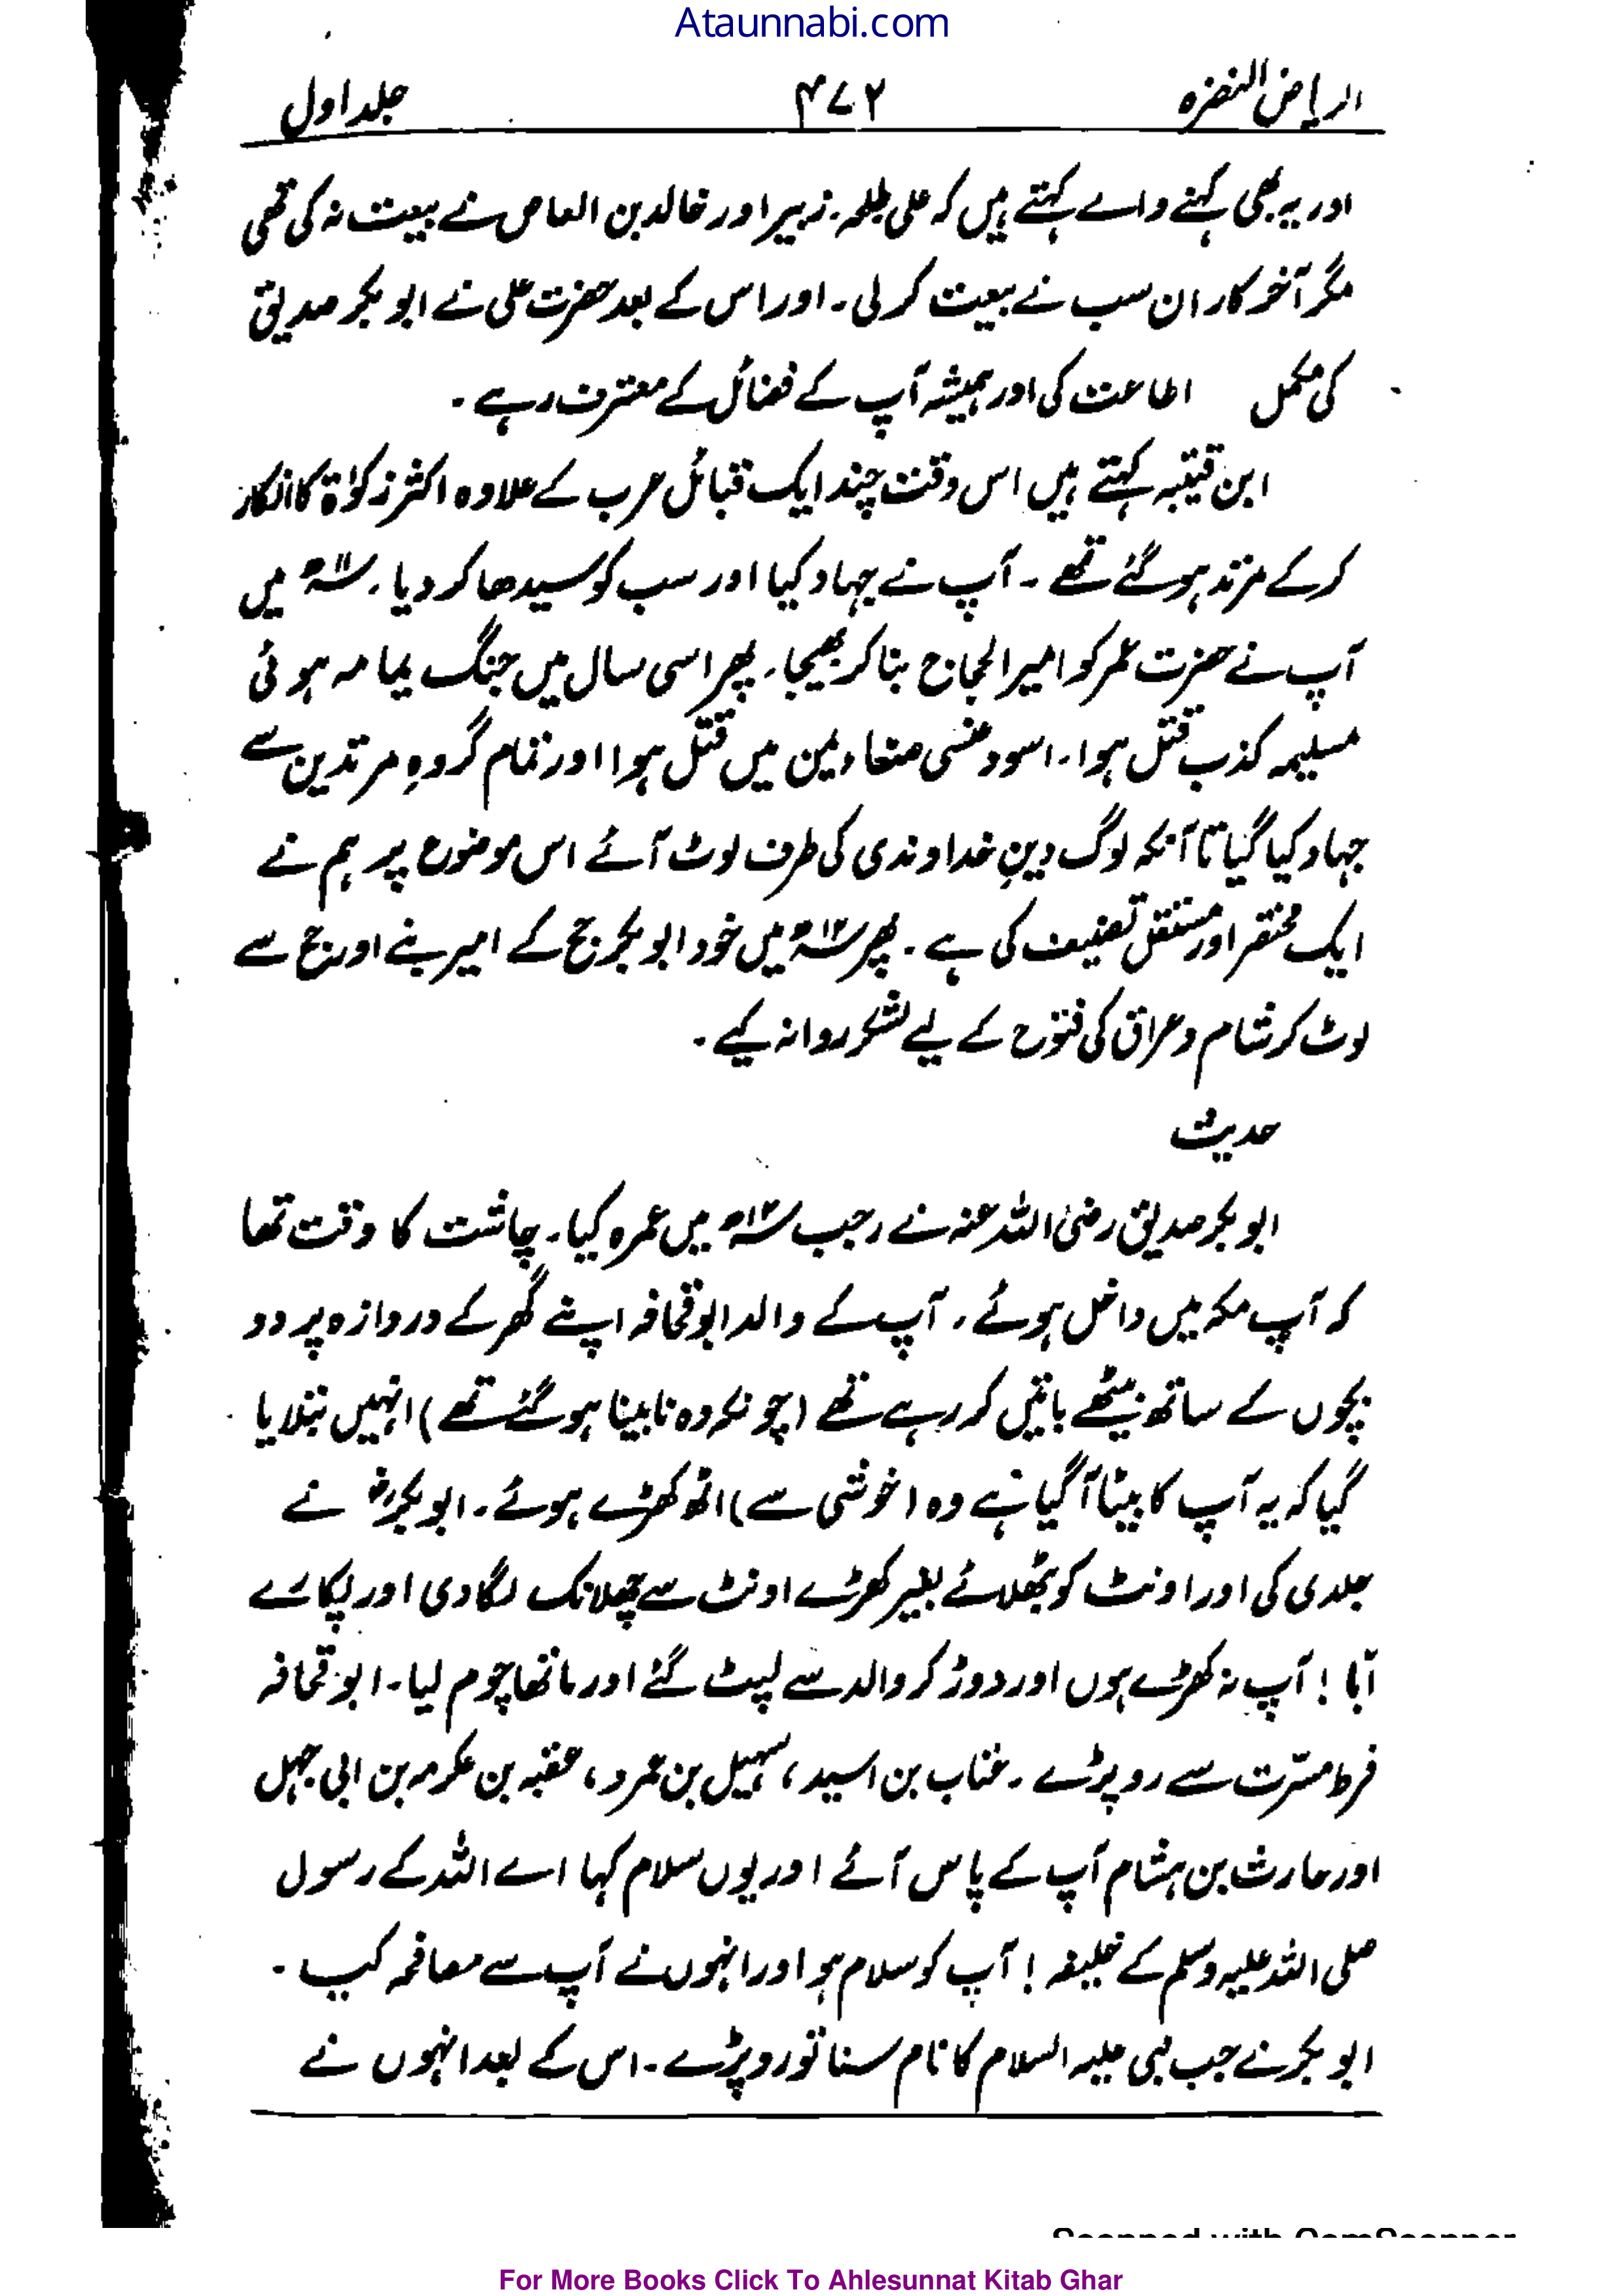 Ataunnabi.com
الریاض النضرہ ۴۷۲ جلد اول
اور یہ بھی کہنے والے کہتے ہیں کہ علی، طلحہ، زبیر اور خالد بن العاص نے بیعت نہ کی تھی
مگر آخر کار ان سب نے بیعت کر لی۔ اور اس کے بعد حضرت علی نے ابو بکر صدیق
کی مکمل اطاعت کی اور ہمیشہ آپ کے فضائل کے معترف رہے۔
ابن قتیبہ کہتے ہیں اس وقت چند ایک قبائل عرب کے علاوہ اکثر زکوٰۃ کا انکار
کر کے مرتد ہو گئے تھے۔ آپ نے جہاد کیا اور سب کو سیدھا کر دیا، ۱۱ھ میں
آپ نے حضرت عمر کو امیر الحجاج بنا کر بھیجا، پھر اسی سال میں جنگ یمامہ ہوئی
مسلیمہ کذب قتل ہوا۔ اسود عنسی صنعاء یمن میں قتل ہوا اور تمام گروہِ مرتدین سے
جہاد کیا گیا تا آنکہ لوگ دینِ خداوندی کی طرف لوٹ آئے اس موضوع پر ہم نے
ایک مختصر اور مستقل تصنیف کی ہے۔ پھر ۱۲ھ میں خود ابو بکر حج کے امیر بنے اور حج سے
لوٹ کر شام و عراق کی فتوح کے لیے لشکر روانہ کیے۔
حدیث
ابو بکر صدیق رضی اللہ عنہ نے رجب ۱۲ھ میں عمرہ کیا۔ چاشت کا وقت تھا
کہ آپ مکہ میں داخل ہوئے، آپ کے والد ابو قحافہ اپنے گھر کے دروازہ پر دو
بچوں کے ساتھ بیٹھے باتیں کر رہے تھے (چونکہ وہ نابینا ہو گئے تھے) انہیں بتلایا
گیا کہ یہ آپ کا بیٹا آ گیا ہے وہ (خوشی سے) اٹھ کھڑے ہوئے۔ ابو بکرؓ نے
جلدی کی اور اونٹ کو بٹھلائے بغیر کھڑے اونٹ سے چھلانک لگا دی اور پکارے
ابّا! آپ نہ کھڑے ہوں اور دوڑ کر والد سے لپٹ گئے اور ماتھا چوم لیا۔ ابو قحافہ
فرط مسرّت سے رو پڑے۔ عتاب بن اسید، سہیل بن عمرو، عقبہ بن عکرمہ بن ابی جہل
اور حارث بن ہشام آپ کے پاس آئے اور یوں سلام کہا اے اللہ کے رسول
صلی اللہ علیہ وسلم کے خلیفہ! آپ کو سلام ہو اور انہوں نے آپ سے مصافحہ کیا۔
ابو بکر نے جب نبی علیہ السلام کا نام سنا تو رو پڑے۔ اس کے بعد انہوں نے
Scanned with CamScanner
For More Books Click To Ahlesunnat Kitab Ghar